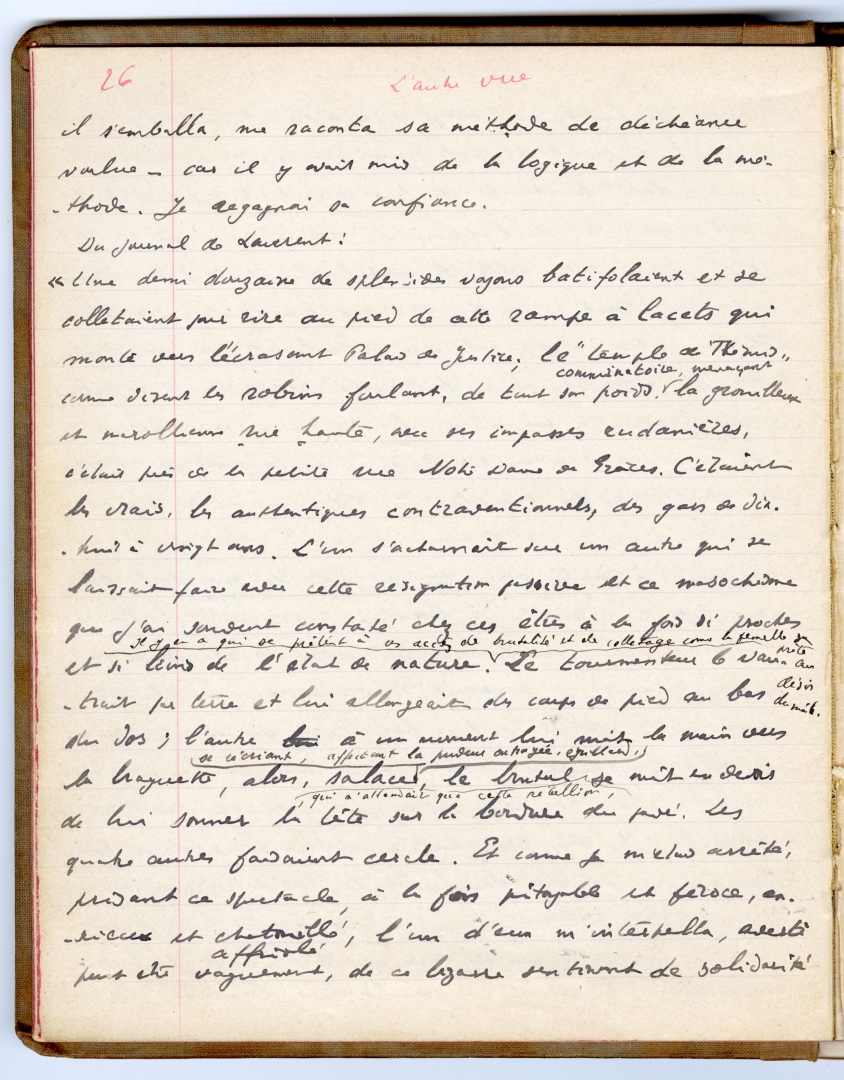 26 L'autre vue
il s'emballa, me raconta sa méthode de déchéance
voulue – car il y avait mis de la logique et de la mé-
-thode. Je regagnai sa confiance.
Du journal de Laurent :
« Une demi douzaine de splendides voyous batifolaient et se
colletaient pour rire au pied de cette rampe à lacets qui
monte vers l'écrasant Palais de Justice, le "temple de Thémis„
comminatoire, menaçant
comme disent les robins foulant, de tout son poids, la grouilleuse
et marollienne rue haute, avec ses impasses rudanières,
c'était près de la petite rue Notre Dame de Grâces. C'étaient
les vrais, les authentiques contraventionnels, des gars de dix-
-huit à vingt ans. L'un s'acharnait sur un autre qui se
laissait faire avec cette résignation passive et ce masochisme
que j'ai souvent constaté chez ces êtres à la fois si proches
Il y en a qui se prêtent à ces accès de brutalité et de colletage comme la femelle se prête au désir du mâle.
et si loins de l'état de nature. Le tourmenteur le vau-
-trait par terre et lui allongeait des coups de pied au bas
du dos ; l'autre lui à un moment lui mit la main vers
se récriant, affectant la pudeur outragée,
la braguette, alors, salace, le brutal se mit en devoir
, qui n'attendait que cette rébellion,
de lui sonner la tête sur la bordure du pavé. Les
quatre autres faisaient cercle. Et comme je m'étais arrêté,
prisant ce spectacle, à la fois pitoyable et féroce, an-
-xieux et chatouillé, l'un d'eux m'interpella, averti
affriolé
peut être vaguement, de ce bizarre sentiment de solidarité